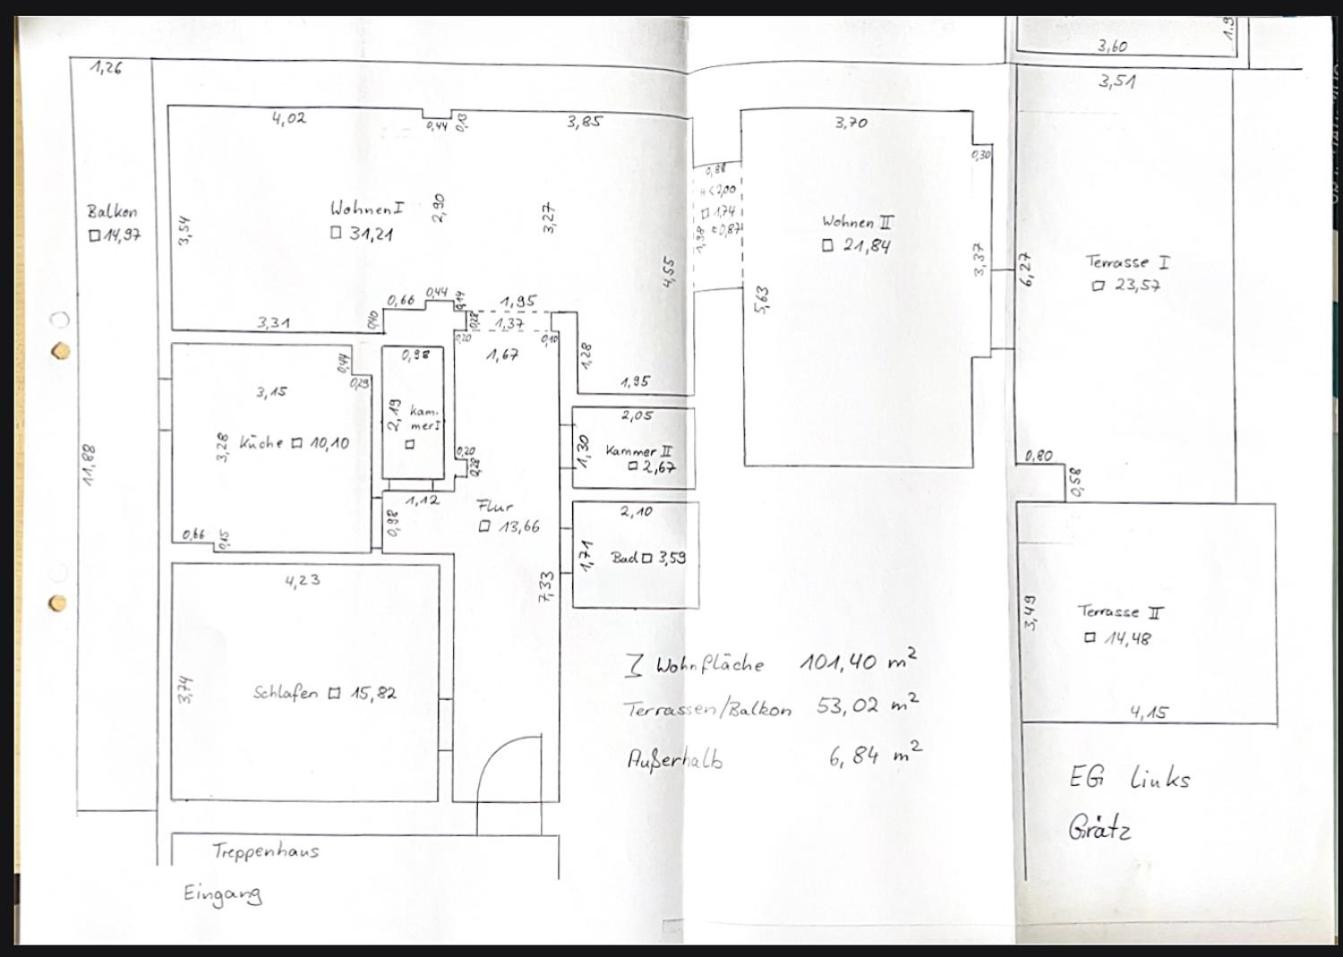 3,60
1,9
1,26
3,51
4,02
0,44
0,13
3,85
3,70
0,30
0,88
H < 2,00
□ 1,74
= 0,87
1,98
Balkon
□ 14,97
3,54
Wohnen I
□ 31,21
2,90
3,27
4,55
Wohnen II
□ 21,84
3,37
6,27
Terrasse I
□ 23,57
5,63
3,31
0,40
0,66
0,44
0,14
1,95
0,28
1,37
0,20
0,10
1,67
1,28
1,95
0,44
0,29
0,98
3,15
2,19
Kam-
mer I
□
3,28
Küche □ 10,10
11,88
2,05
1,30
Kammer II
□ 2,67
0,20
0,28
1,12
0,98
0,80
0,58
Flur
□ 13,66
2,10
1,71
Bad □ 3,59
0,66
0,15
4,23
7,33
3,49
Terrasse II
□ 14,48
3,74
Schlafen □ 15,82
Σ Wohnfläche 101,40 m²
Terrassen/Balkon 53,02 m²
Außerhalb 6,84 m²
4,15
EG links
Grätz
Treppenhaus
Eingang